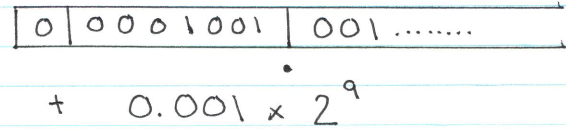 0 0001001 001........
.
+ 0.001 × 2⁹